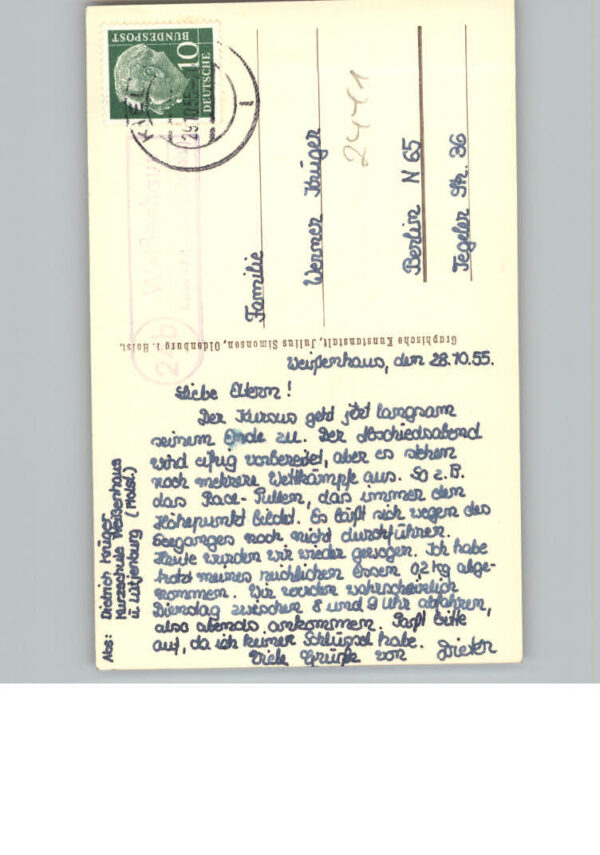 DEUTSCHE
BUNDESPOST
10
KIEL
29.10.55
24b
Weißenhaus
Familie
Werner Krüger
2441
Berlin N 65
Tegeler Str. 36
Graphische Kunstanstalt, Julius Simonsen, Oldenburg i. Holst.
Weißenhaus, den 28.10.55.
Liebe Eltern!
Der Kursus geht jetzt langsam
seinem Ende zu. Der Abschiedsabend
wird eifrig vorbereitet, aber es stehen
noch mehrere Wettkämpfe aus. So z.B.
das Race-Pullen, das immer den
Höhepunkt bildet. Es läßt sich wegen des
Seeganges noch nicht durchführen.
Heute wurden wir wieder gewogen. Ich habe
trotz meines reichlichen Essen 0,2 kg abge-
nommen. Wir werden wahrscheinlich
Dienstag zwischen 8 und 9 Uhr abfahren,
also abends ankommen. Paßt bitte
auf, da ich keinen Schlüssel habe.
Viele Grüße von Dieter
Abs: Dietrich Krüger
Kurzschule Weißenhaus
ü. Lütjenburg (Holst.)